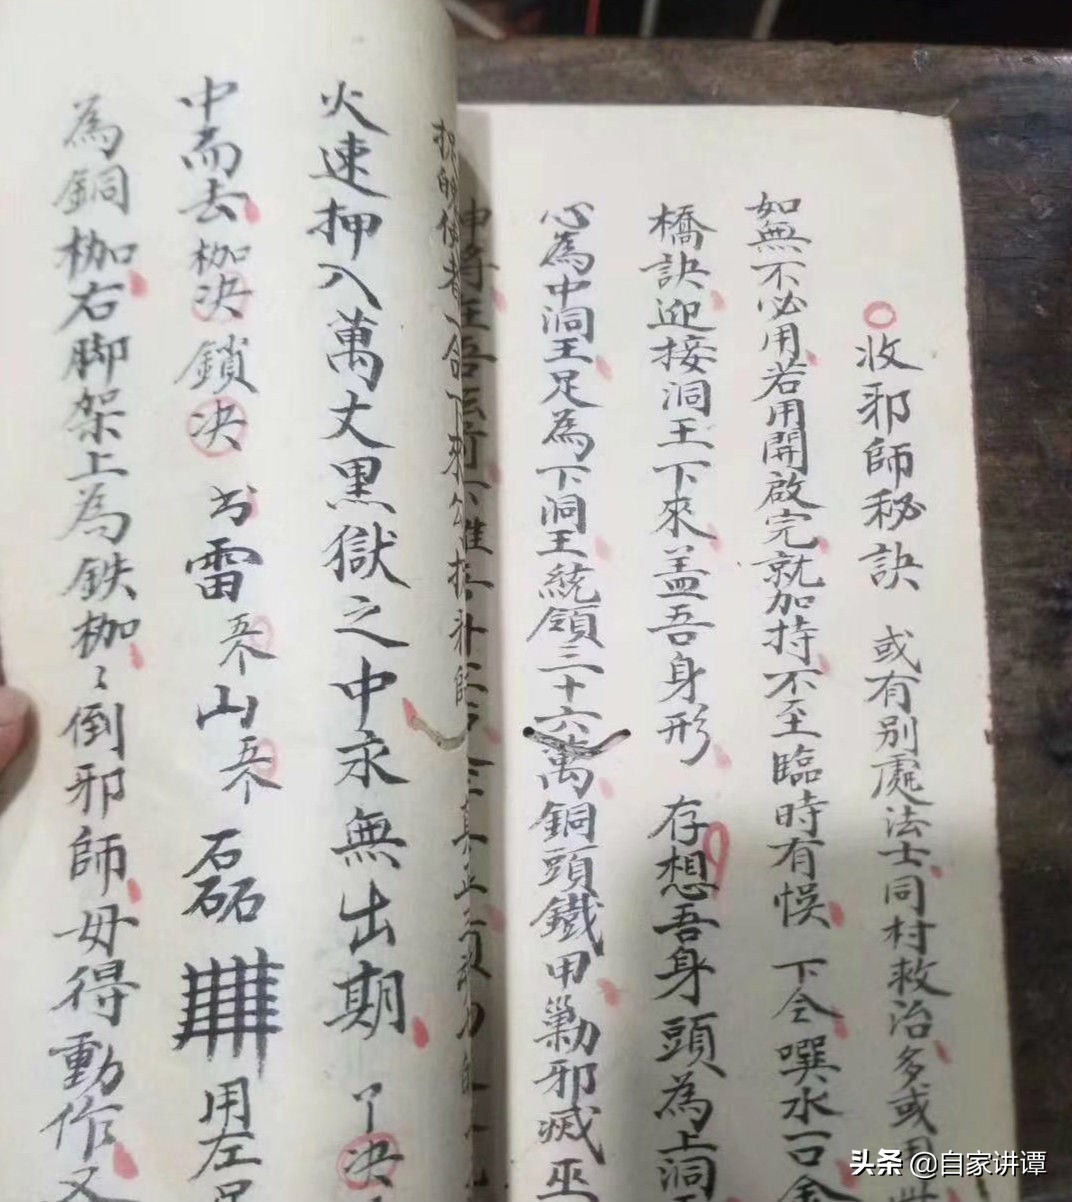 收邪師秘訣 或有别處法士同村救治多或用
如無不必用若用開啟完就加持不至臨時有悞 下令噀水一口
橋訣迎接洞王下來盖吾身形 存想吾身頭為上洞
心為中洞王足為下洞王統領三十六萬銅頭鐵甲勦邪滅巫
火速押入萬丈黑獄之中永無出期 了決
中而去枷決鎖決 雷 山 磊 用左
為銅枷右脚架上為鉄枷〻倒邪師毋得動作又
头条 @自家讲谭